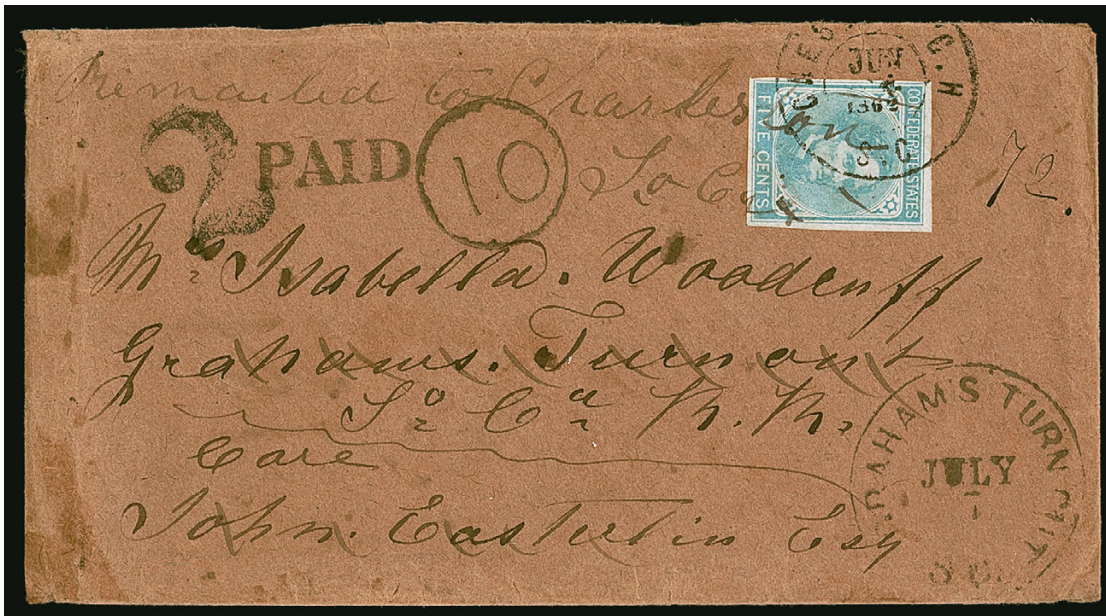 Remailed to Charles
ton
So Ca
PAID
10
C.H
JUN
1862
S.C
CONFEDERATE STATES
FIVE CENTS
72.
Mrs Isabella. Woodruff
Grahams. Turnout
So Ca R. R.
Care
John. Easterlin Esq
GRAHAM'S TURN OUT
JULY
S.C.